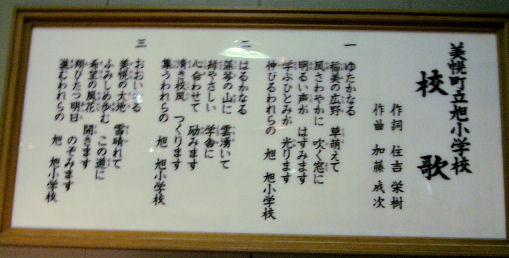 美幌町立旭小学校
校歌
作詞 住吉栄樹
作曲 加藤成次
一
ゆたかなる
稲美の広野 草萌えて
風さわやかに 吹く窓に
明るい声が はずみます
学ぶひとみが 光ります
伸びるわれらの 旭 旭小学校
二
はるかなる
藻琴の山に 雲湧いて
緑やさしい 学舎に
心合わせて 励みます
清き校風 つくります
集うわれらの 旭 旭小学校
三
おおいなる
美幌の大地 雪晴れて
ふみしめ歩む この道に
希望の風花 開きます
翔びたつ明日 のぞみます
進むわれらの 旭 旭小学校